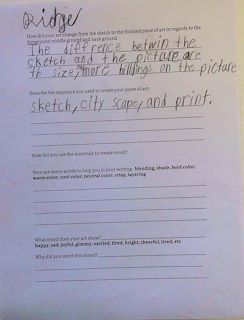 Ridge
How did your art change from the sketch to the finished piece of art in regards to the
foreground middle ground and back ground
The diffrence betwin the
sketch and the picture are
th size, more billdings on the picture
Describe the sequence you used to create your piece of art.
sketch, city scape, and print.
How did you use the materials to create mood?
Here are some words to help you in your writing: blending, shade, bold color,
warm color, cool color, neutral color, crisp, layering
What mood does your art show?
happy, sad, joyful, gloomy, excited, tired, bright, cheerful, tired, etc
Why did you select this mood?